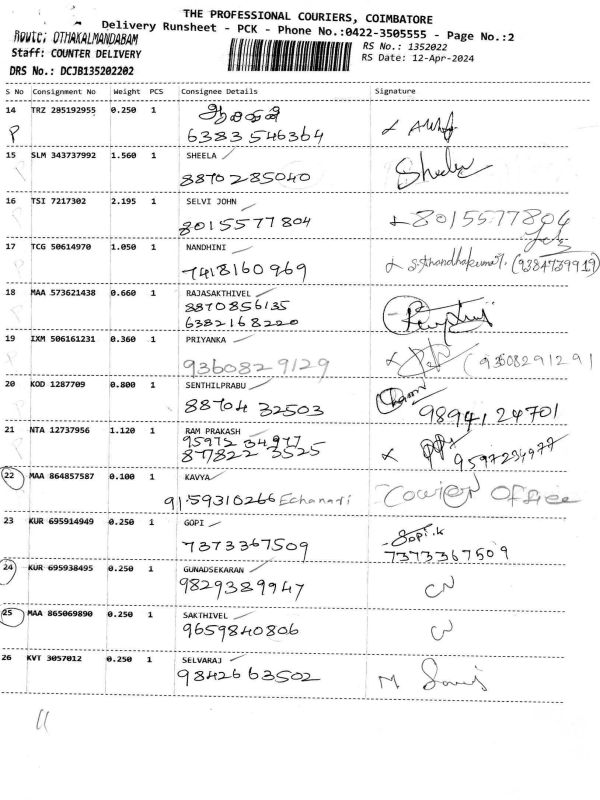 THE PROFESSIONAL COURIERS, COIMBATORE
Delivery Runsheet - PCK - Phone No.:0422-3505555 - Page No.:2
Route: OTHAKALMANDABAM
Staff: COUNTER DELIVERY
RS No.: 1352022
RS Date: 12-Apr-2024
DRS No.: DCJB135202202
S No Consignment No Weight PCS Consignee Details Signature
14 TRZ 285192955 0.250 1
P 6383546364
15 SLM 343737992 1.560 1 SHEELA Sheela
8870285040
16 TSI 7217302 2.195 1 SELVI JOHN
8015577804 8015577804
17 TCG 50614970 1.050 1 NANDHINI
7418160969 (9384739919)
18 MAA 573621438 0.660 1 RAJASAKTHIVEL
8870856135
6382168220
19 IXM 506161231 0.360 1 PRIYANKA
9360829129 (9360829129)
20 KOD 1287709 0.800 1 SENTHILPRABU
88704 32503 98941 24701
21 NTA 12737956 1.120 1 RAM PRAKASH
95972 34977
877822 3525 9597234977
22 MAA 864857587 0.100 1 KAVYA
91-59310266 Echanari Courier Office
23 KUR 695914949 0.250 1 GOPI Gopi.k
7373367509 7373367509
24 KUR 695938495 0.250 1 GUNADSEKARAN
9829389947 CN
25 MAA 865069890 0.250 1 SAKTHIVEL
9659840806
26 KVT 3057012 0.250 1 SELVARAJ
9842663502 M